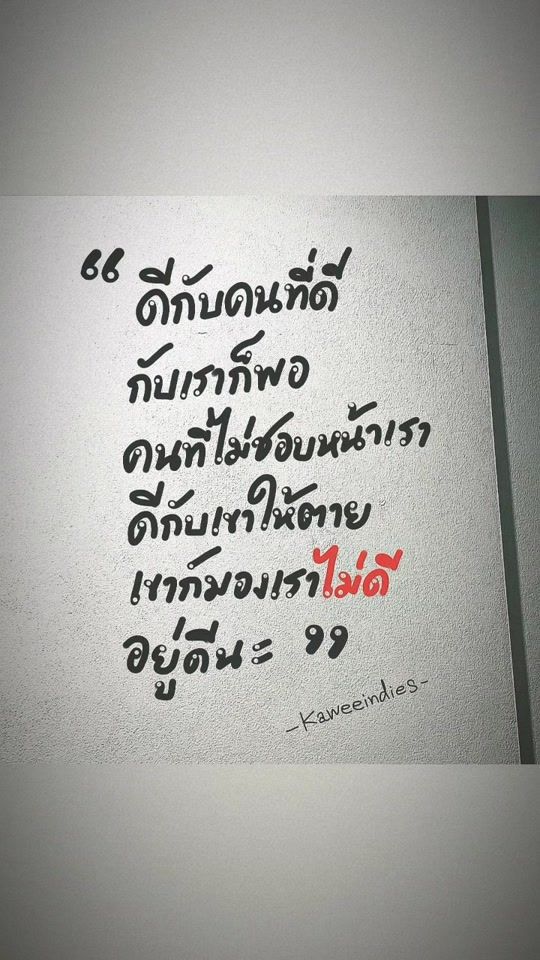 “ ดีกับคนที่ดี
กับเราก็พอ
คนที่ไม่ชอบหน้าเรา
ดีกับเขาให้ตาย
เขาก็มองเราไม่ดี
อยู่ดีนะ ”
-Kaweeindies-